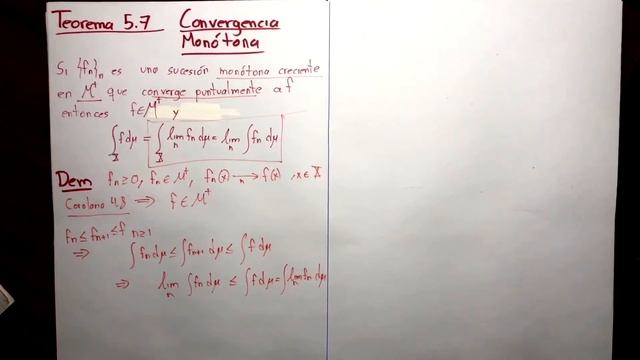 Teorema 5.7 Convergencia
Monótona
Si {fn}n es una sucesión monótona creciente
en M⁺ que converge puntualmente a f
entonces f∈M⁺ y
∫_X f dμ = ∫_X lim_n fn dμ = lim_n ∫ fn dμ
Dem fn≥0, fn∈M⁺, fn(x) →_n f(x), x∈X
Corolario 4.8 ⟹ f∈M⁺
fn ≤ fn+1 ≤ f n≥1
⟹ ∫fn dμ ≤ ∫fn+1 dμ ≤ ∫f dμ
⟹ lim_n ∫fn dμ ≤ ∫f dμ = ∫lim_n fn dμ